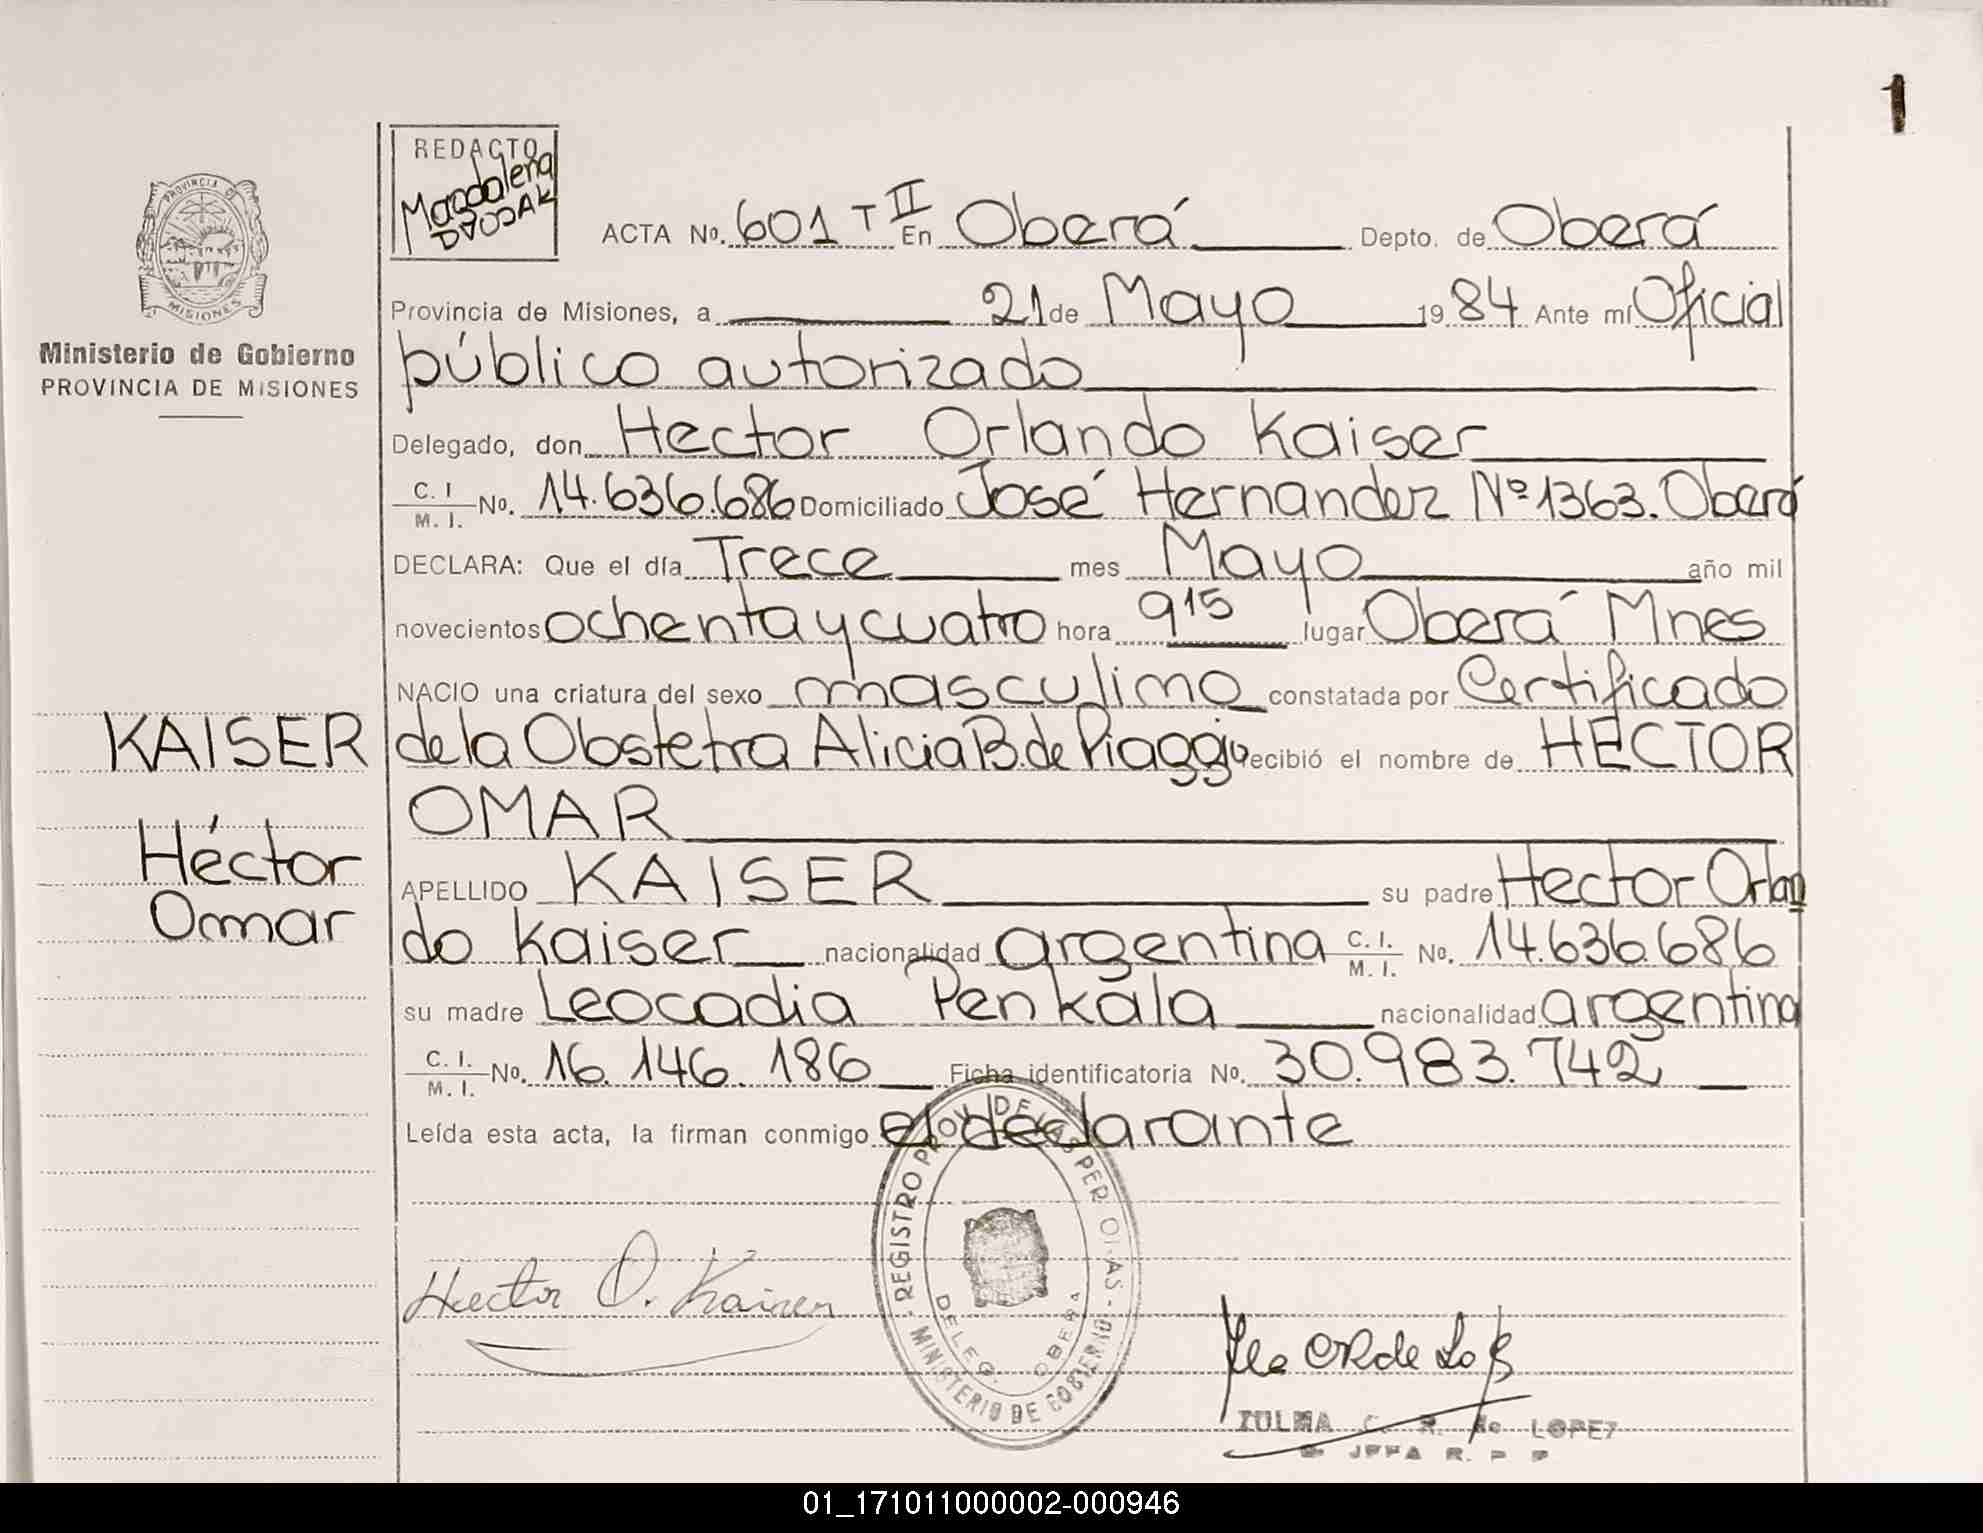 1
REDACTO
Magdalena
PROVINCIA DE
MISIONES
Ministerio de Gobierno
PROVINCIA DE MISIONES
ACTA No. 601 T II En Oberá Depto. de Oberá
Provincia de Misiones, a 21 de Mayo 1984 Ante mí Oficial
público autorizado
Delegado, don Hector Orlando Kaiser
C. I. M. I. No. 14.636.686 Domiciliado José Hernandez Nº 1363. Oberá
DECLARA: Que el día Trece mes Mayo año mil
novecientos ochenta y cuatro hora 9 15 lugar Oberá Mnes
NACIO una criatura del sexo masculino constatada por Certificado
KAISER
de la Obstetra Alicia B. de Piaggio recibió el nombre de HECTOR
OMAR
Héctor
Omar
APELLIDO KAISER su padre Hector Orlan
do Kaiser nacionalidad argentina C. I. M. I. No. 14.636.686
su madre Leocadia Penkala nacionalidad argentina
C. I. M. I. No. 16.146.186 Ficha identificatoria No. 30.983.742
Leída esta acta, la firman conmigo el declarante
REGISTRO PROV. DE LAS PERSONAS
DELEG. OBERA
MINISTERIO DE GOBIERNO
Hector O. Kaiser
ZULMA C. R. de LOPEZ
JEFA R. P. P.
01_171011000002-000946